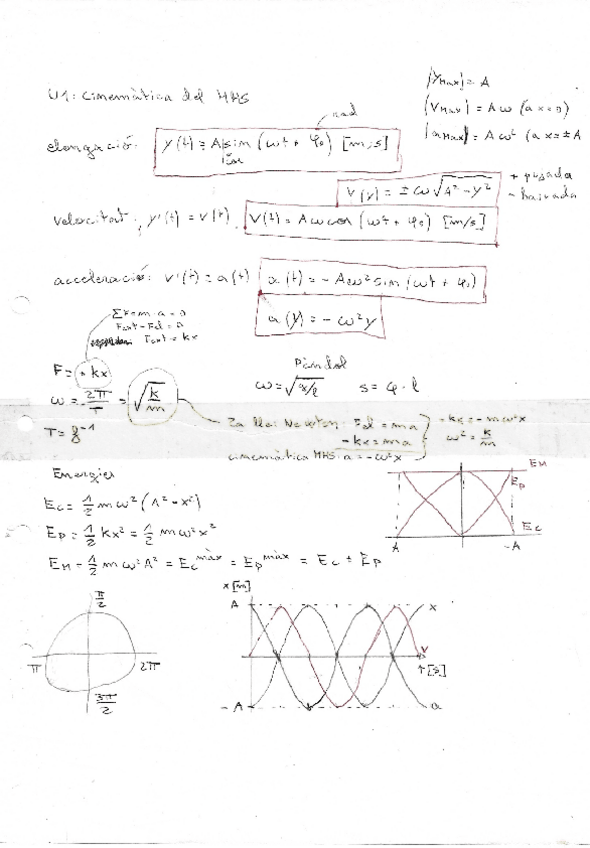 U1: Cinemàtica del MHS
|Y_Max| = A
|V_Max| = Aω (a x=0)
|a_Max| = Aω² (a x=±A
rad
elongació: y(t) = A sin (ωt + φ₀) [m;s]
v(y) = ±ω√A²-y² + pujada
- baixada
velocitat: y'(t) = v(t). V(t) = Aω cos (ωt + φ₀) [m/s]
acceleració: v'(t) = a(t) a(t) = -Aω² sin (ωt + φ₀)
a(y) = -ω²y
ΣF=m·a=0
Fext - Fel = 0
Fext = kx
F = -kx
Pèndol
ω = √g/l s = φ·l
ω = 2π/T = √k/m
2a llei Newton: Fel = ma
-kx = ma
cinemàtica MHS: a = -ω²x
-kx = -mω²x
ω² = k/m
T = f⁻¹
Energies
Ec = 1/2 mω² (A²-x²)
Ep = 1/2 kx² = 1/2 mω²x²
EM = 1/2 mω²A² = Ec màx = Ep màx = Ec + Ep
EM
Ep
Ec
A -A
π/2
π 2π
3π/2
x[m]
A x
v
t[s]
-A a